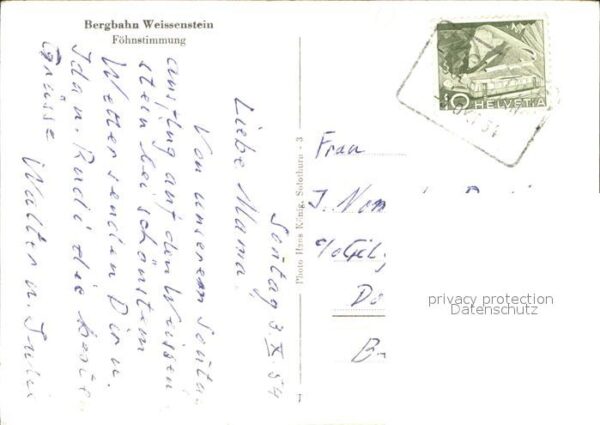 Bergbahn Weissenstein
Föhnstimmung
Sontag 3.X.54
Liebe Mama.
Von unserem Sonta-
ausflug auf den Weissen-
stein bei schönstem
Wetter senden Dir u.
Ida u. Rudi die beste
Grüsse Walter u.
Photo Hans König, Solothurn - 3
HELVETIA
10
Frau
J.
c/o
Do
B
privacy protection
Datenschutz